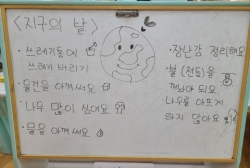 <지구의 날>
· 쓰레기통에
쓰레기 버리기
· 물건을 아껴써요
· 나무 많이 심어요
· 물을 아껴써요
· 장난감 정리해요
· 불 (전등)을
꺼놔야 되요
나무를 아프게
하지 않아요